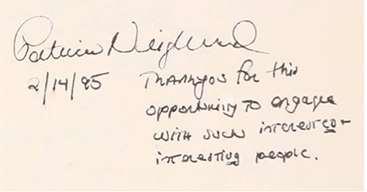 Patricia Neighmond
2/14/95 Thankyou for this
opportunity to engage
with such interested +
interesting people.